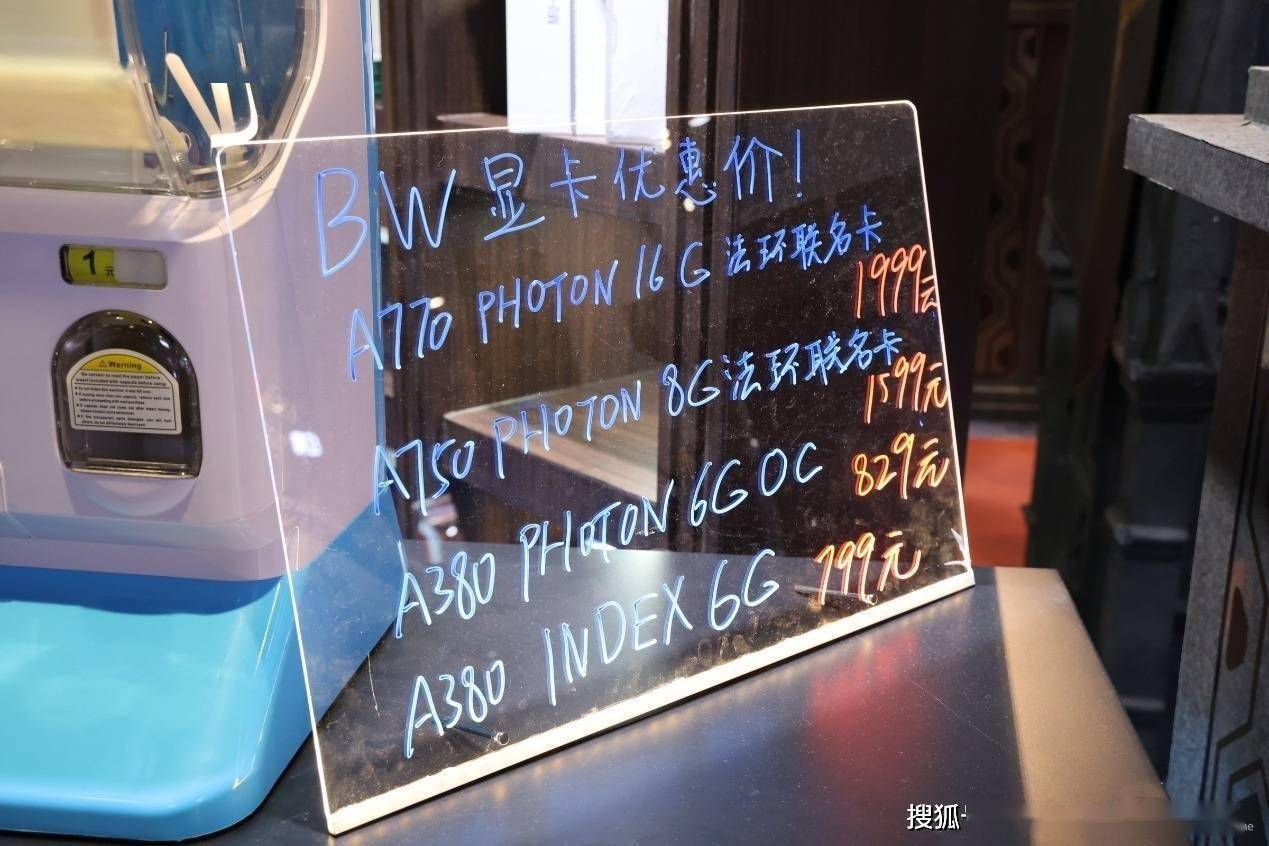 BW显卡优惠价!
A770 PHOTON 16G 法环联名卡
1999元
A750 PHOTON 8G 法环联名卡
1599元
A380 PHOTON 6G OC 829元
A380 INDEX 6G 799元
1元
Warning
搜狐